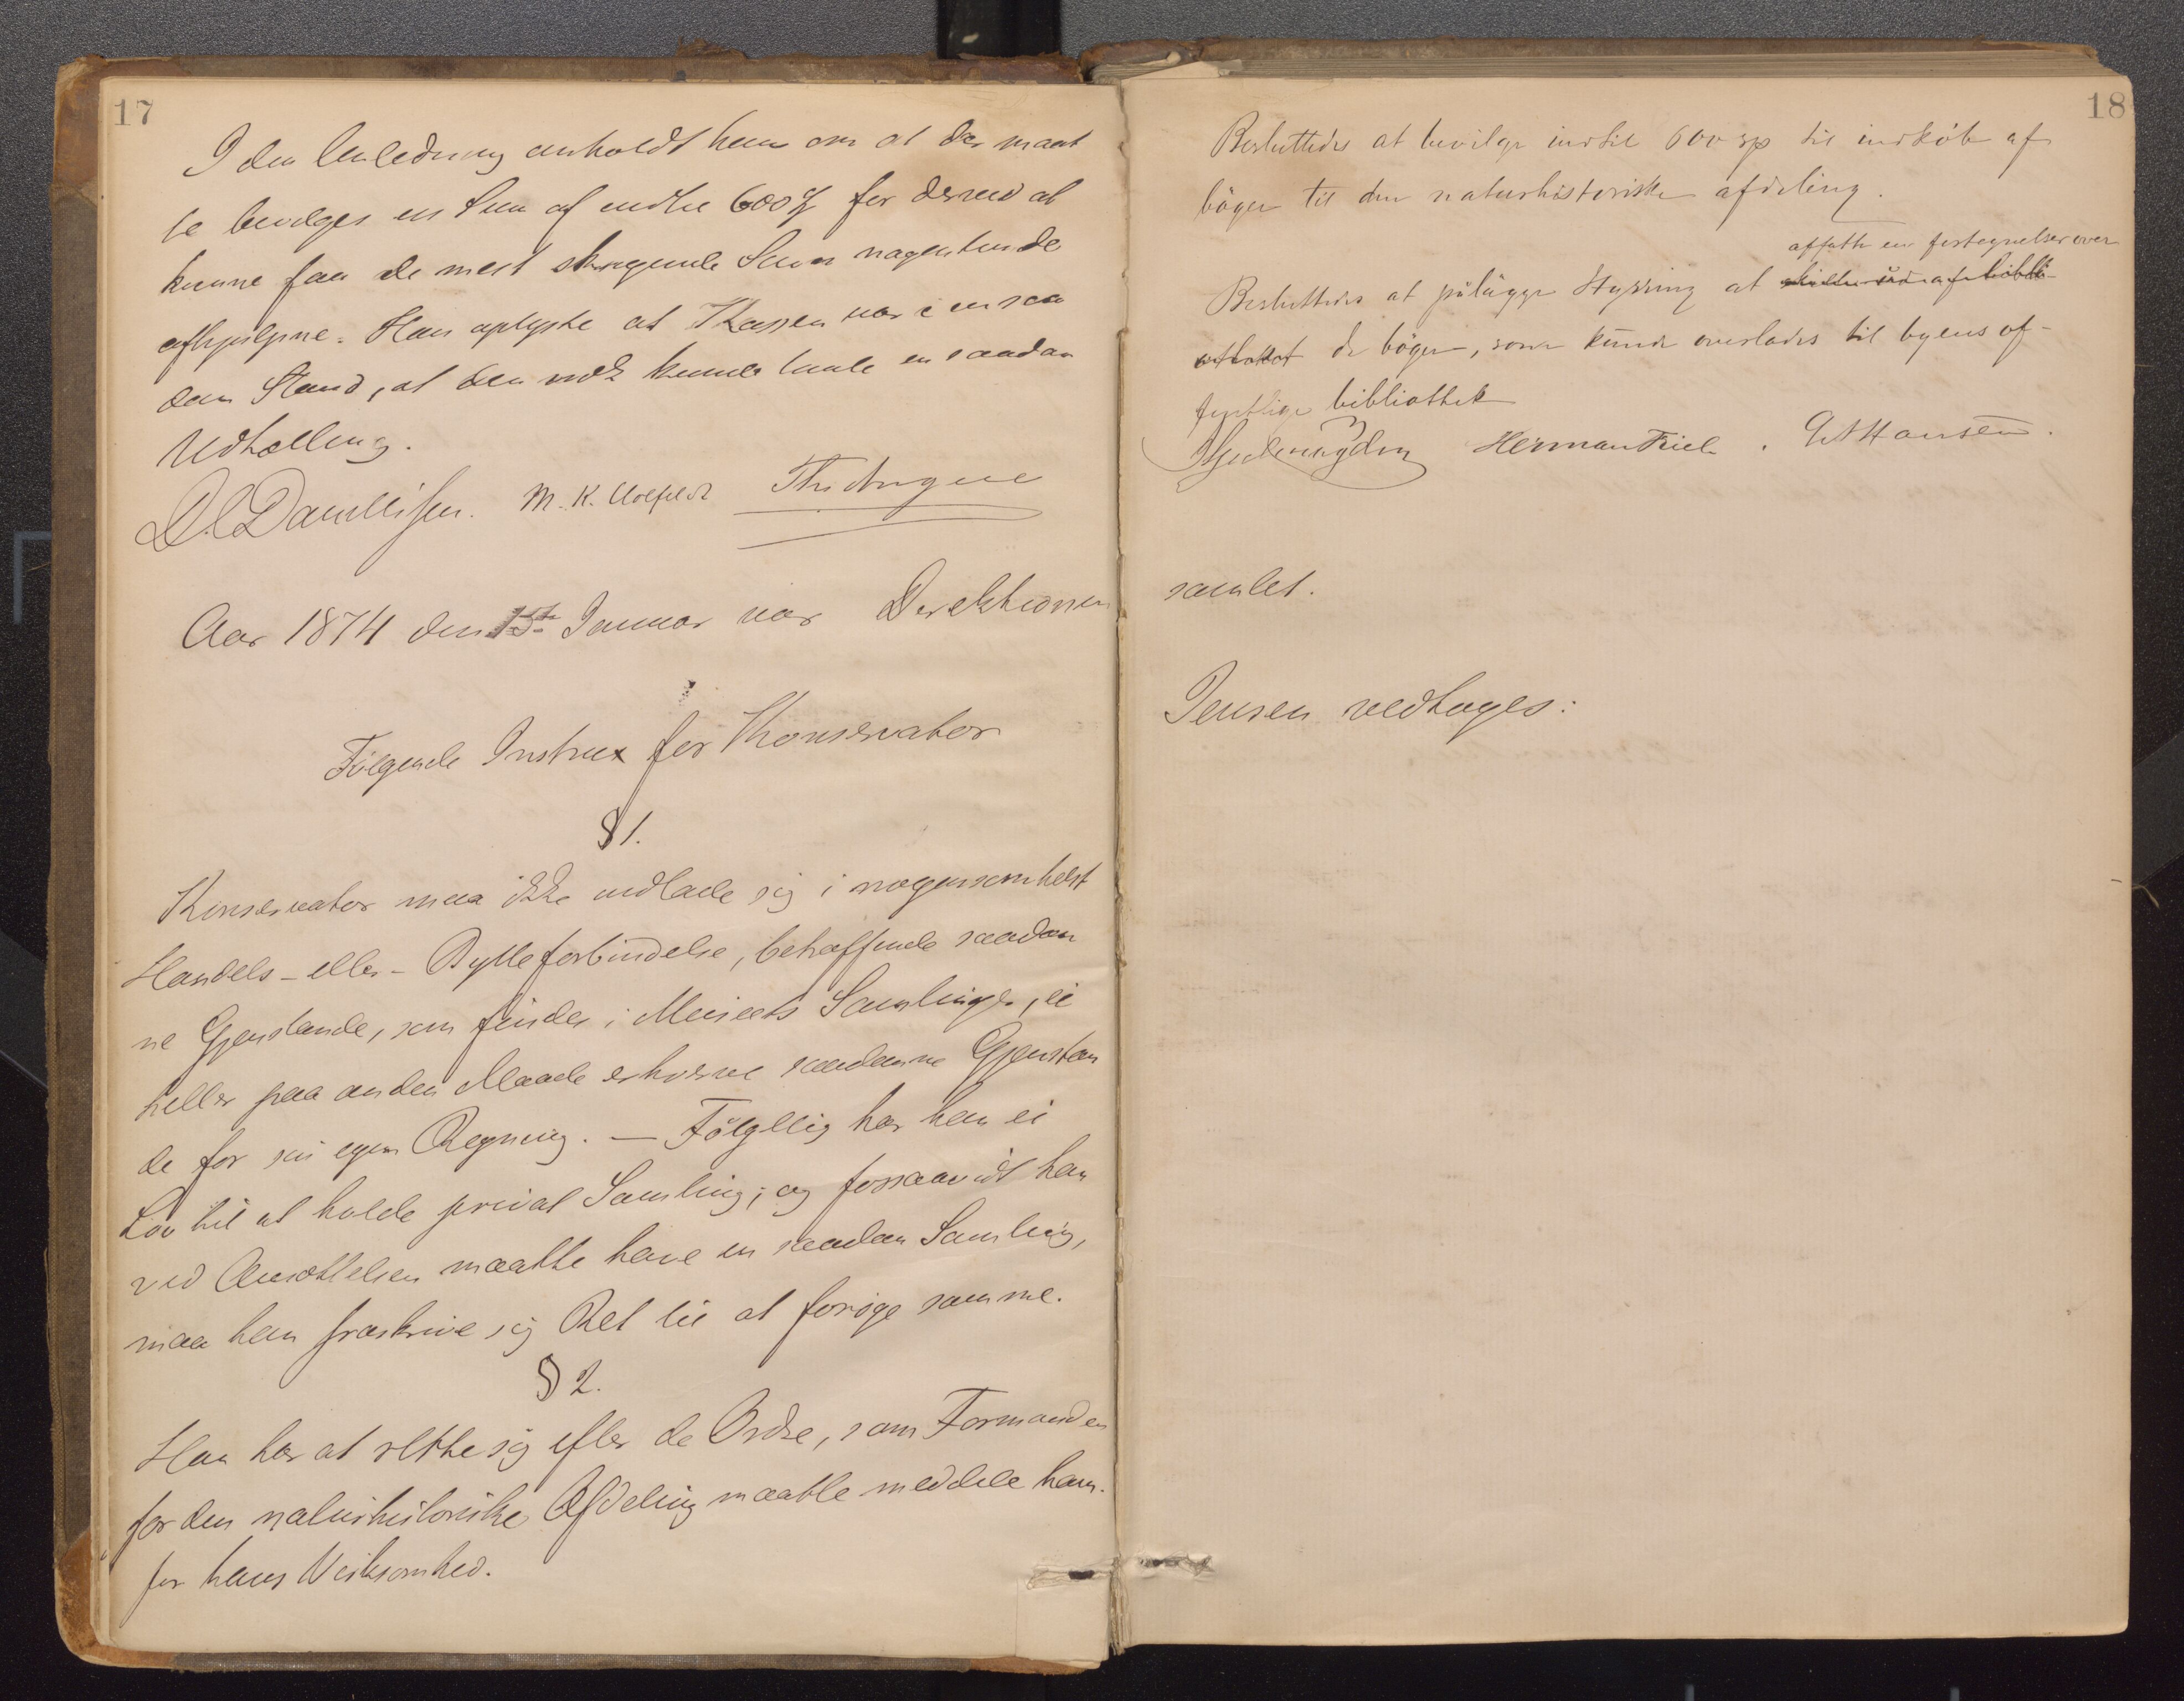 17
I den Anledning anholdt han om at der maat
te bevilges en Sum af indtil 600 for derved at
kunne faa de mest skrigende Savn nogenlunde
afhjulpne. Han oplyste at Kassen var i en saa
dan Stand, at den nok kunde taale en saadan
Udtælling.
D.C. Danielssen. M. K.
Aar 1874 den 15te Januar var Direktionen
Følgende Instrux for Konservator
§ 1.
Konservator maa ikke indlade sig i nogensomhelst
Handels- eller- Bytteforbindelse, betræffende saadan
ne Gjenstande, som findes i Museets Samlinger, ei
heller paa anden Maade erhverve saadanne Gjenstan
de for sin egen Regning. — Følgelig har han ei
Lov til at holde privat Samling; og forsaavidt han
ved Ansættelsen maatte have en saadan Samling,
maa han fraskrive sig Ret til at forøge samme.
§ 2.
Han har at rette sig efter de Ordre, som Formanden
for den naturhistoriske Afdeling maatte meddele ham
for hans Virksomhed.
18
Besluttedes at bevilge indtil 600 sp til indkøb af
bøger til den naturhistoriske afdeling.
affatte en fortegnelse over
Besluttedes at pålægge Styrring at
de bøger, som kunde overlades til byens of-
fentlige bibliothek
Herman Friele. G A Hansen.
samlet.
Jensen vedtoges: